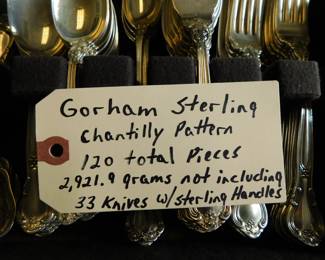 Gorham Sterling
Chantilly Pattern
120 total Pieces
2,921.9 grams not including
33 Knives w/sterling Handles